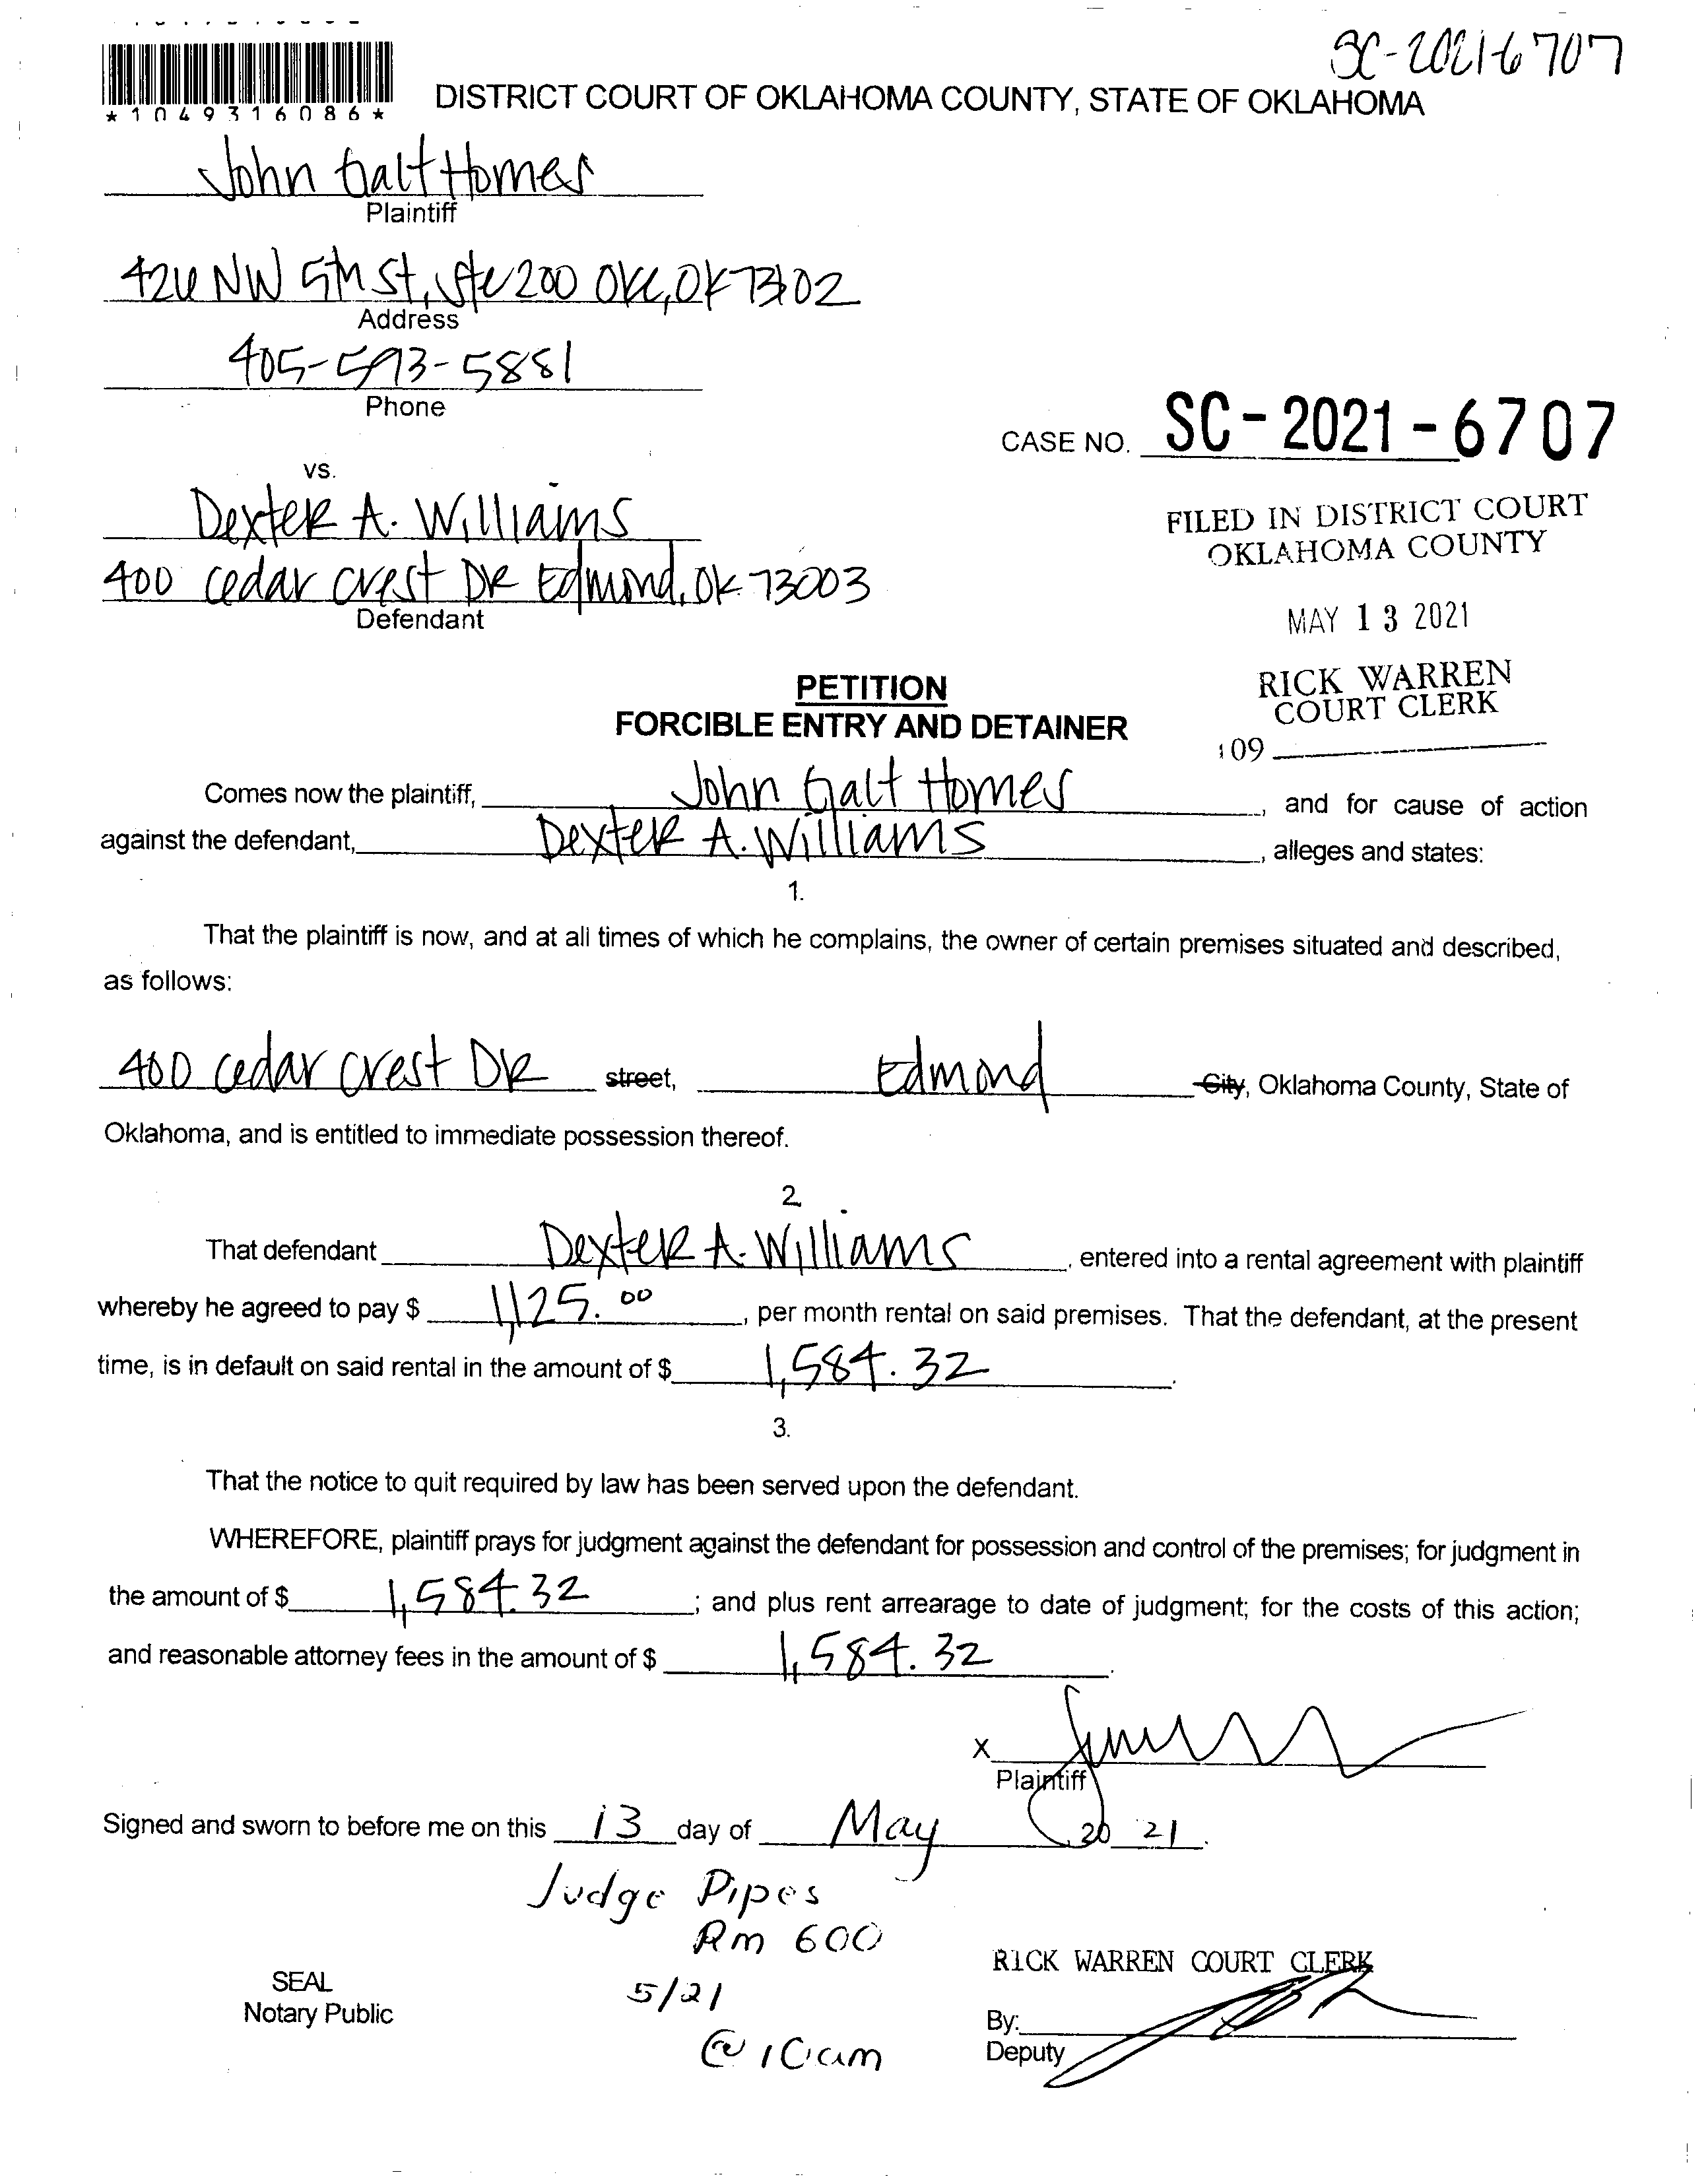 SC-2021-6707
*1049316086*
DISTRICT COURT OF OKLAHOMA COUNTY, STATE OF OKLAHOMA
John Galt Homes
Plaintiff
NW 5th St, Ste 200 OKC, OK 73102
Address
405-593-5881
Phone
CASE NO. SC-2021-6707
vs.
Dexter A. Williams
400 Cedar Crest DR Edmond, OK 73003
Defendant
FILED IN DISTRICT COURT
OKLAHOMA COUNTY
MAY 13 2021
RICK WARREN
COURT CLERK
109
PETITION
FORCIBLE ENTRY AND DETAINER
Comes now the plaintiff, John Galt Homes, and for cause of action
against the defendant, Dexter A. Williams, alleges and states:
1.
That the plaintiff is now, and at all times of which he complains, the owner of certain premises situated and described,
as follows:
400 Cedar Crest DR street, Edmond City, Oklahoma County, State of
Oklahoma, and is entitled to immediate possession thereof.
2.
That defendant Dexter A. Williams, entered into a rental agreement with plaintiff
whereby he agreed to pay $ 1,125.00, per month rental on said premises. That the defendant, at the present
time, is in default on said rental in the amount of $ 1,584.32.
3.
That the notice to quit required by law has been served upon the defendant.
WHEREFORE, plaintiff prays for judgment against the defendant for possession and control of the premises; for judgment in
the amount of $ 1,584.32; and plus rent arrearage to date of judgment; for the costs of this action;
and reasonable attorney fees in the amount of $ 1,584.32.
X
Plaintiff
Signed and sworn to before me on this 13 day of May, 2021.
Judge Pipes
Rm 600
5/21
@ 10am
SEAL
Notary Public
RICK WARREN COURT CLERK
By:
Deputy